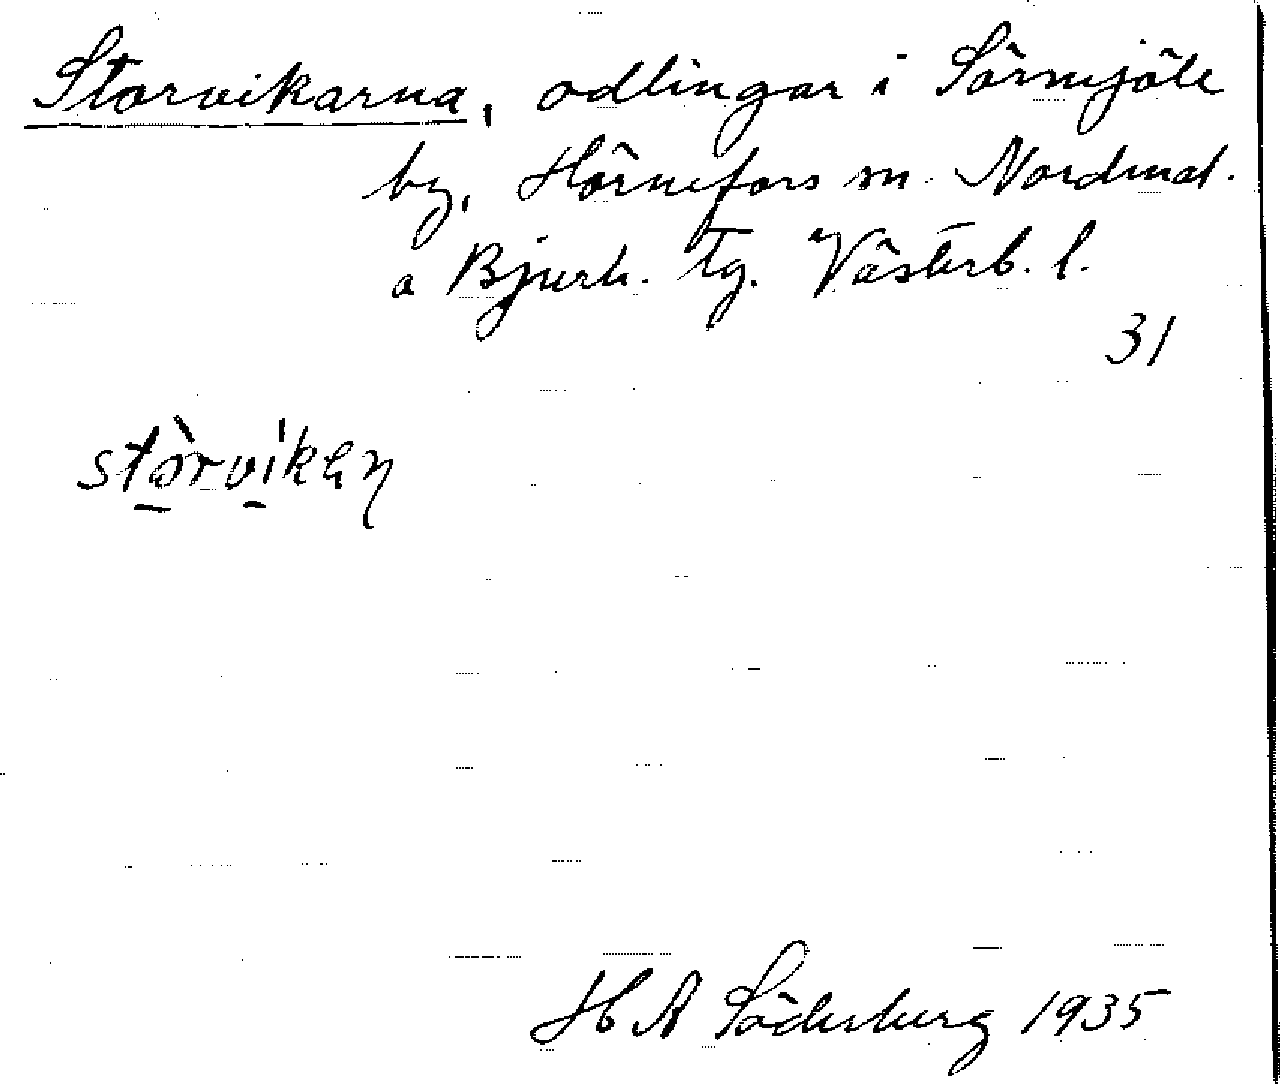 Storvikarna, odlingar i Sörmjöle
by, Hörnefors sn. Nordmal.
o Bjurh. tg. Västerb. l.
31
stòrvikan
H A Söderberg 1935